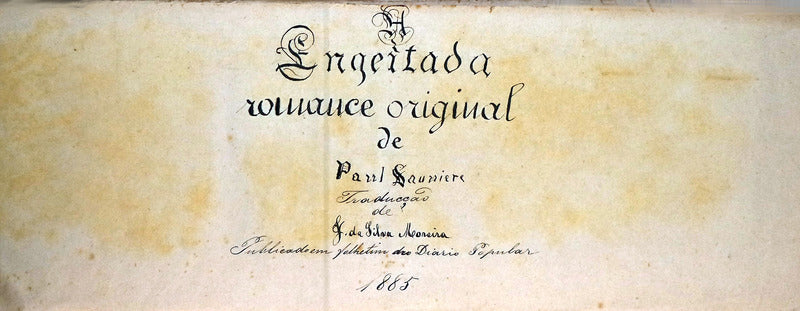 A
Engeitada
romance original
de
Paul Sauniere
Traducção
de
J. da Silva Moreira
Publicado em folhetim do Diario Popular
1885